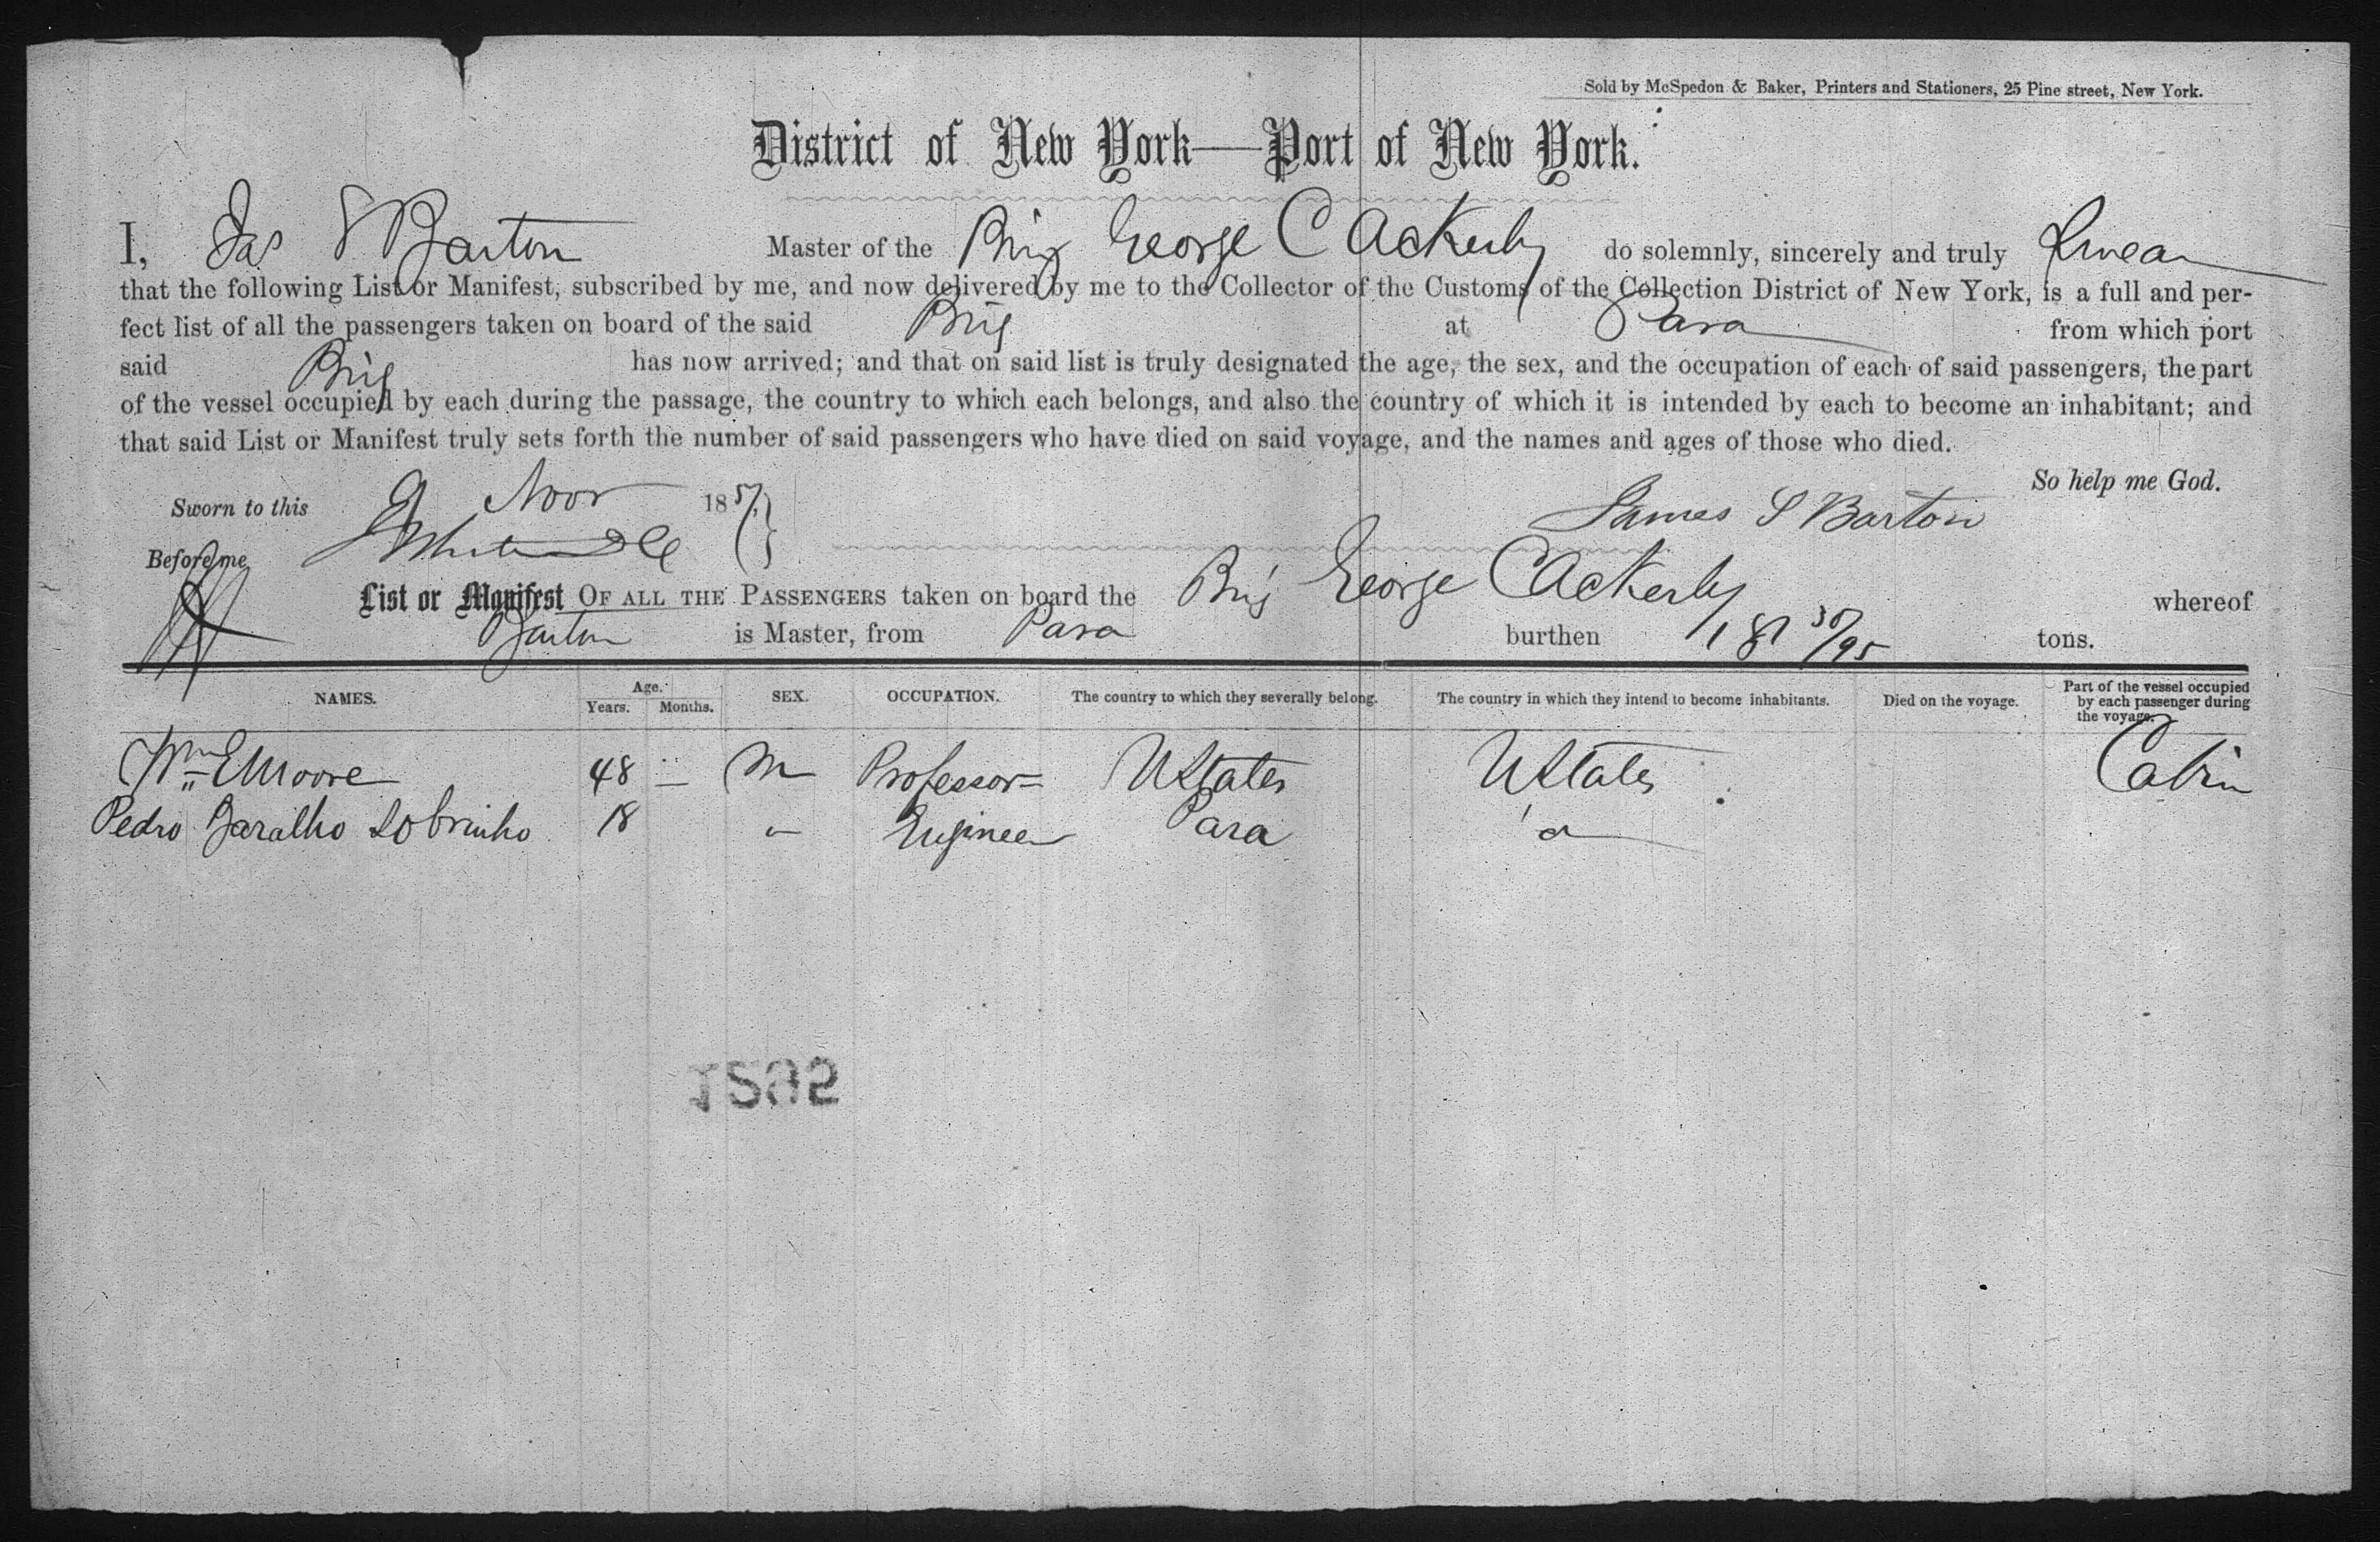 Sold by McSpedon & Baker, Printers and Stationers, 25 Pine street, New York.
District of New York—Port of New York.
I, Jas S Barton Master of the Brig George C Ackerly do solemnly, sincerely and truly Swear
that the following List or Manifest, subscribed by me, and now delivered by me to the Collector of the Customs of the Collection District of New York, is a full and per-
fect list of all the passengers taken on board of the said Brig at Para from which port
said Brig has now arrived; and that on said list is truly designated the age, the sex, and the occupation of each of said passengers, the part
of the vessel occupied by each during the passage, the country to which each belongs, and also the country of which it is intended by each to become an inhabitant; and
that said List or Manifest truly sets forth the number of said passengers who have died on said voyage, and the names and ages of those who died.
So help me God.
Sworn to this 9 Novr 1857
James S Barton
Before me
List or Manifest OF ALL THE PASSENGERS taken on board the Brig George C Ackerly whereof
Barton is Master, from Para burthen 181 30/95 tons.
NAMES. Age. Years. Months. SEX. OCCUPATION. The country to which they severally belong. The country in which they intend to become inhabitants. Died on the voyage. Part of the vessel occupied by each passenger during the voyage.
Wm E Moore 48 — M Professor UStates UStates Cabin
Pedro Baralho Sobrinho 18 " Engineer Para